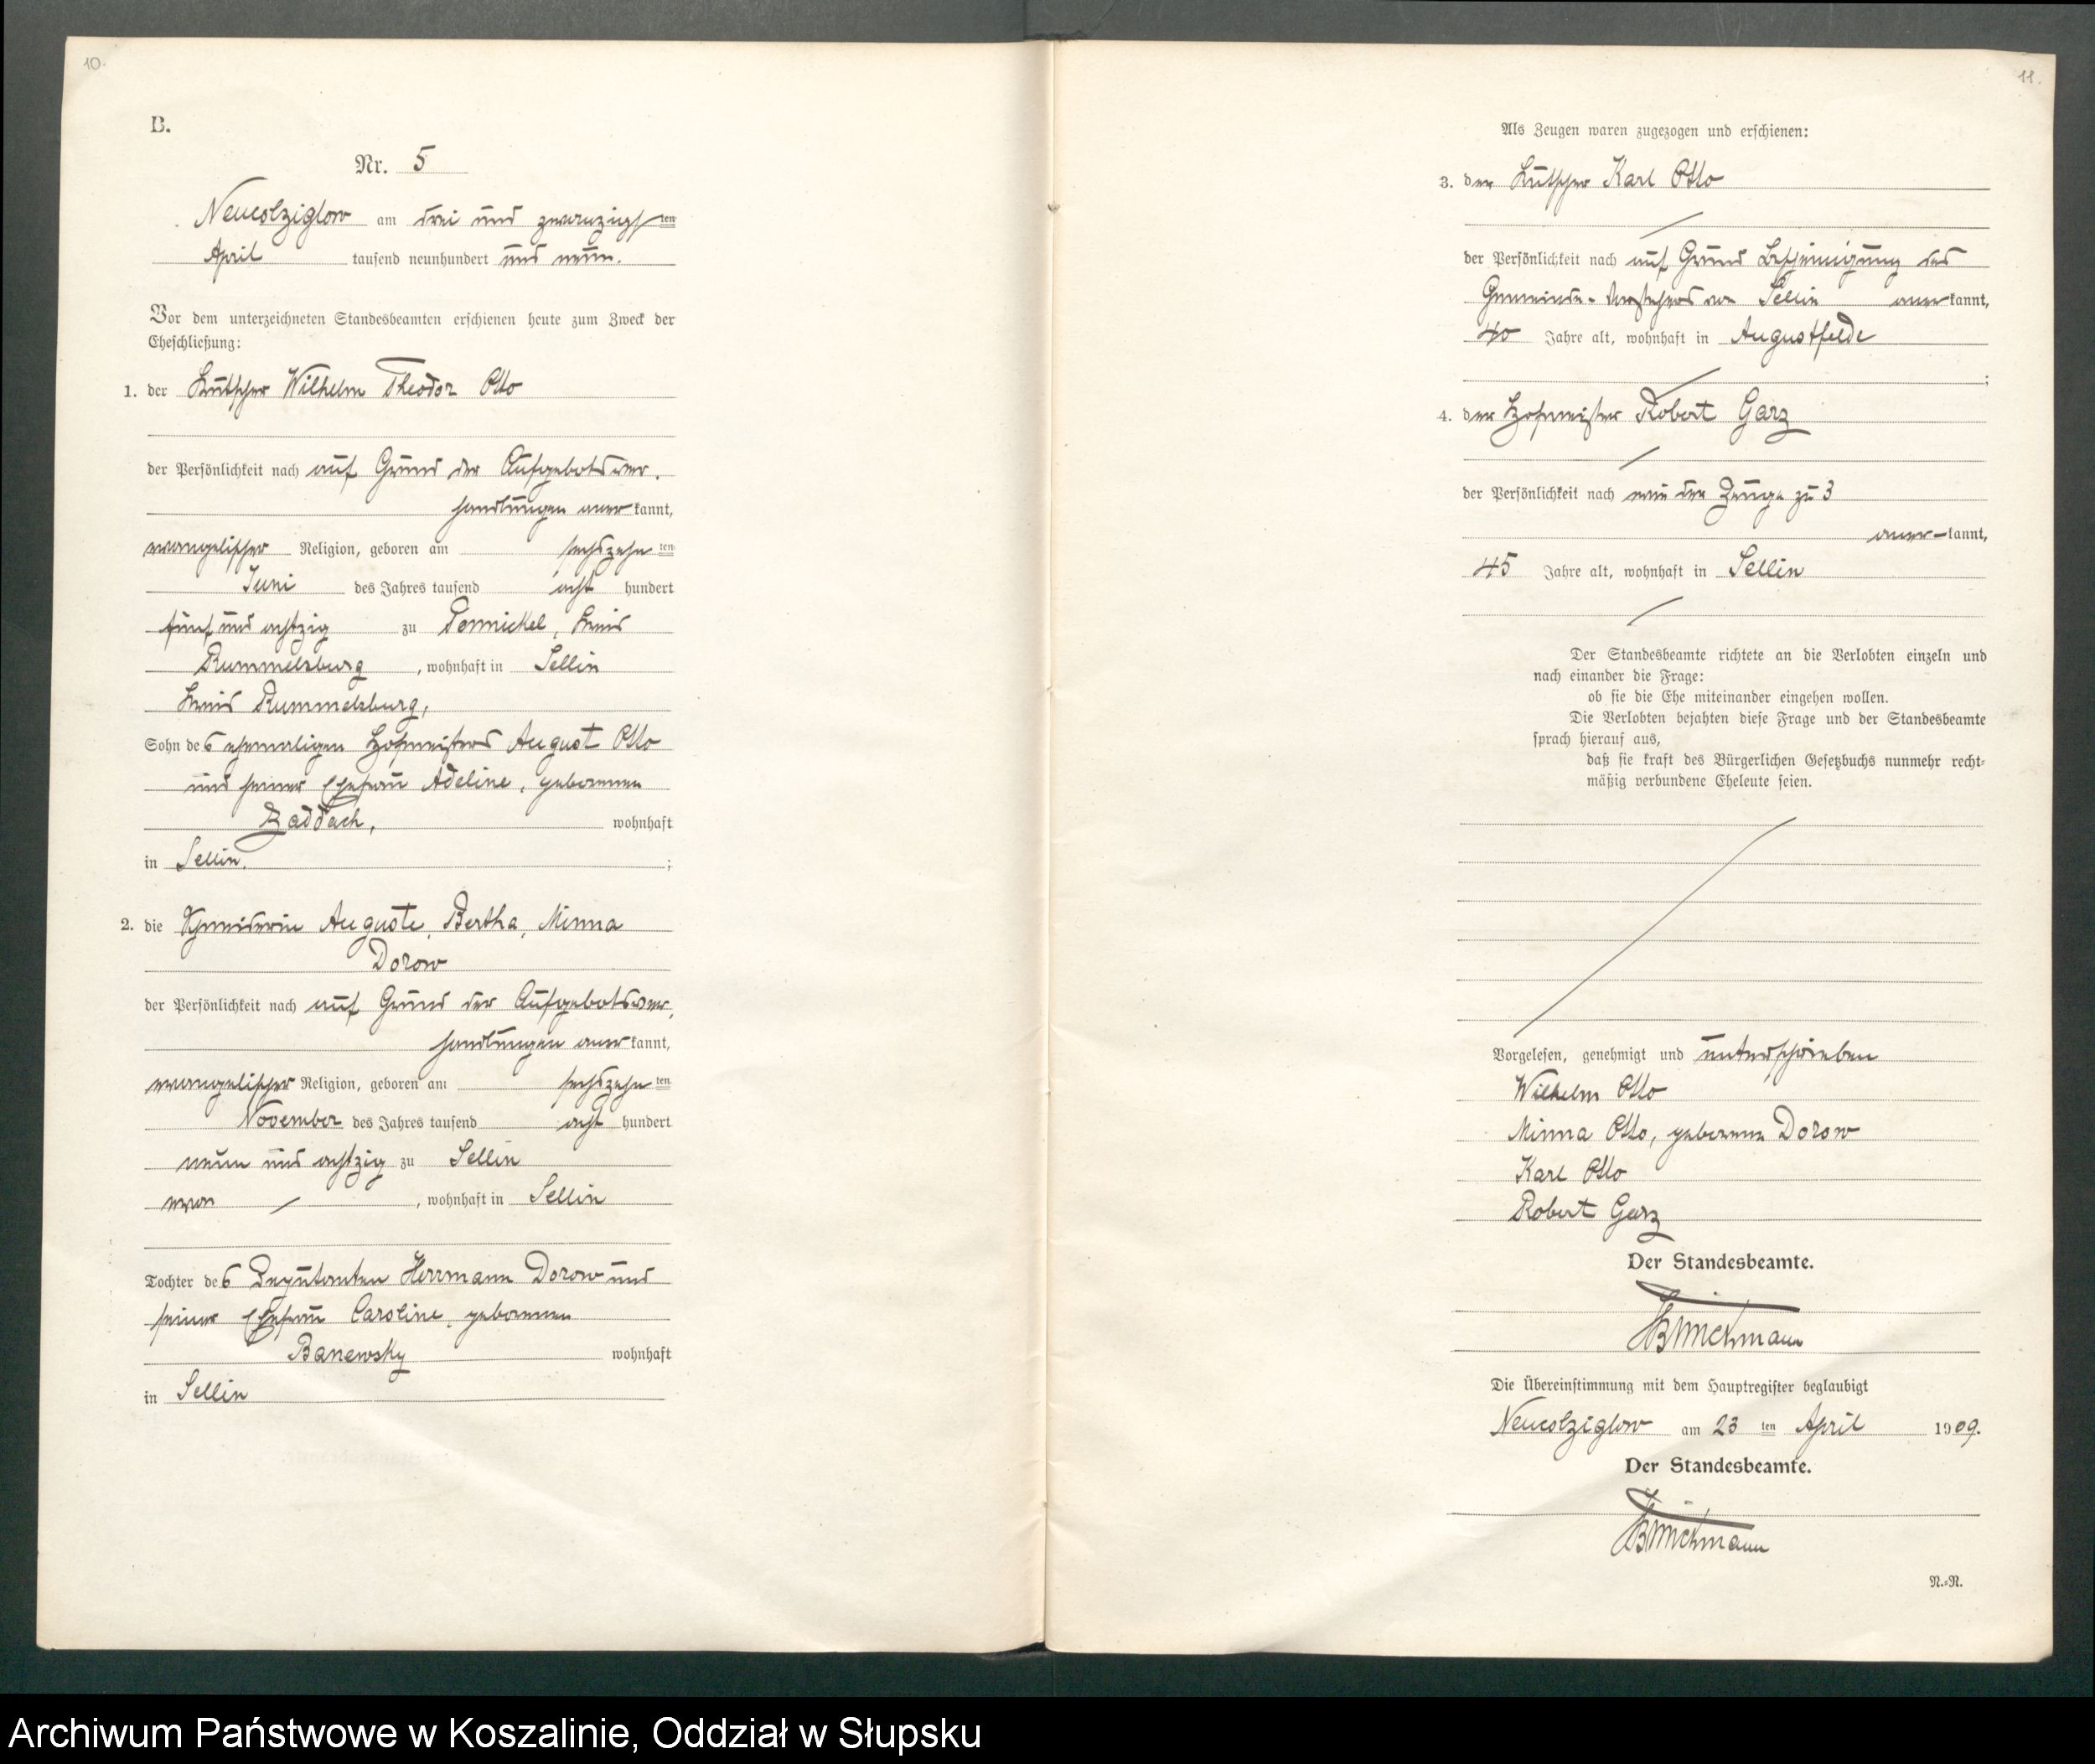 10.
B.
Nr. 5
Neucolziglow am drei und zwanzigsten
April tausend neunhundert und neun.
Vor dem unterzeichneten Standesbeamten erschienen heute zum Zweck der
Eheschließung:
1. der Kutscher Wilhelm Theodor Otto
der Persönlichkeit nach auf Grund der Aufgebotsver-
handlungen anerkannt,
evangelischer Religion, geboren am sechszehnten
Juni des Jahres tausend acht hundert
fünf und achtzig zu Ponnickel, Kreis
Rummelsburg, wohnhaft in Sellin
Kreis Rummelsburg,
Sohn des ehemaligen Hofmeisters August Otto
und seiner Ehefrau Adeline, geborenen
Zaddach, wohnhaft
in Sellin. ;
2. die Schneiderin Auguste, Bertha, Minna
Dorow
der Persönlichkeit nach auf Grund der Aufgebotsver-
handlungen anerkannt,
evangelischer Religion, geboren am sechszehnten
November des Jahres tausend acht hundert
neun und achtzig zu Sellin
, wohnhaft in Sellin
Tochter des Deputanten Herrmann Dorow und
seiner Ehefrau Caroline, geborenen
Banewsky wohnhaft
in Sellin
11.
Als Zeugen waren zugezogen und erschienen:
3. der Kutscher Karl Otto
der Persönlichkeit nach auf Grund Bescheinigung des
Gemeinde-Vorstehers von Sellin anerkannt,
40 Jahre alt, wohnhaft in Augustfelde
;
4. der Hofmeister Robert Garz
der Persönlichkeit nach wie der Zeuge zu 3
aner-kannt,
45 Jahre alt, wohnhaft in Sellin
Der Standesbeamte richtete an die Verlobten einzeln und
nach einander die Frage:
ob sie die Ehe miteinander eingehen wollen.
Die Verlobten bejahten diese Frage und der Standesbeamte
sprach hierauf aus,
daß sie kraft des Bürgerlichen Gesetzbuchs nunmehr recht-
mäßig verbundene Eheleute seien.
Vorgelesen, genehmigt und unterschrieben
Wilhelm Otto
Minna Otto, geborene Dorow
Karl Otto
Robert Garz
Der Standesbeamte.
Brinckmann
Die Übereinstimmung mit dem Hauptregister beglaubigt
Neucolziglow am 23 ten April 1909.
Der Standesbeamte.
Brinckmann
N.-R.
Archiwum Państwowe w Koszalinie, Oddział w Słupsku